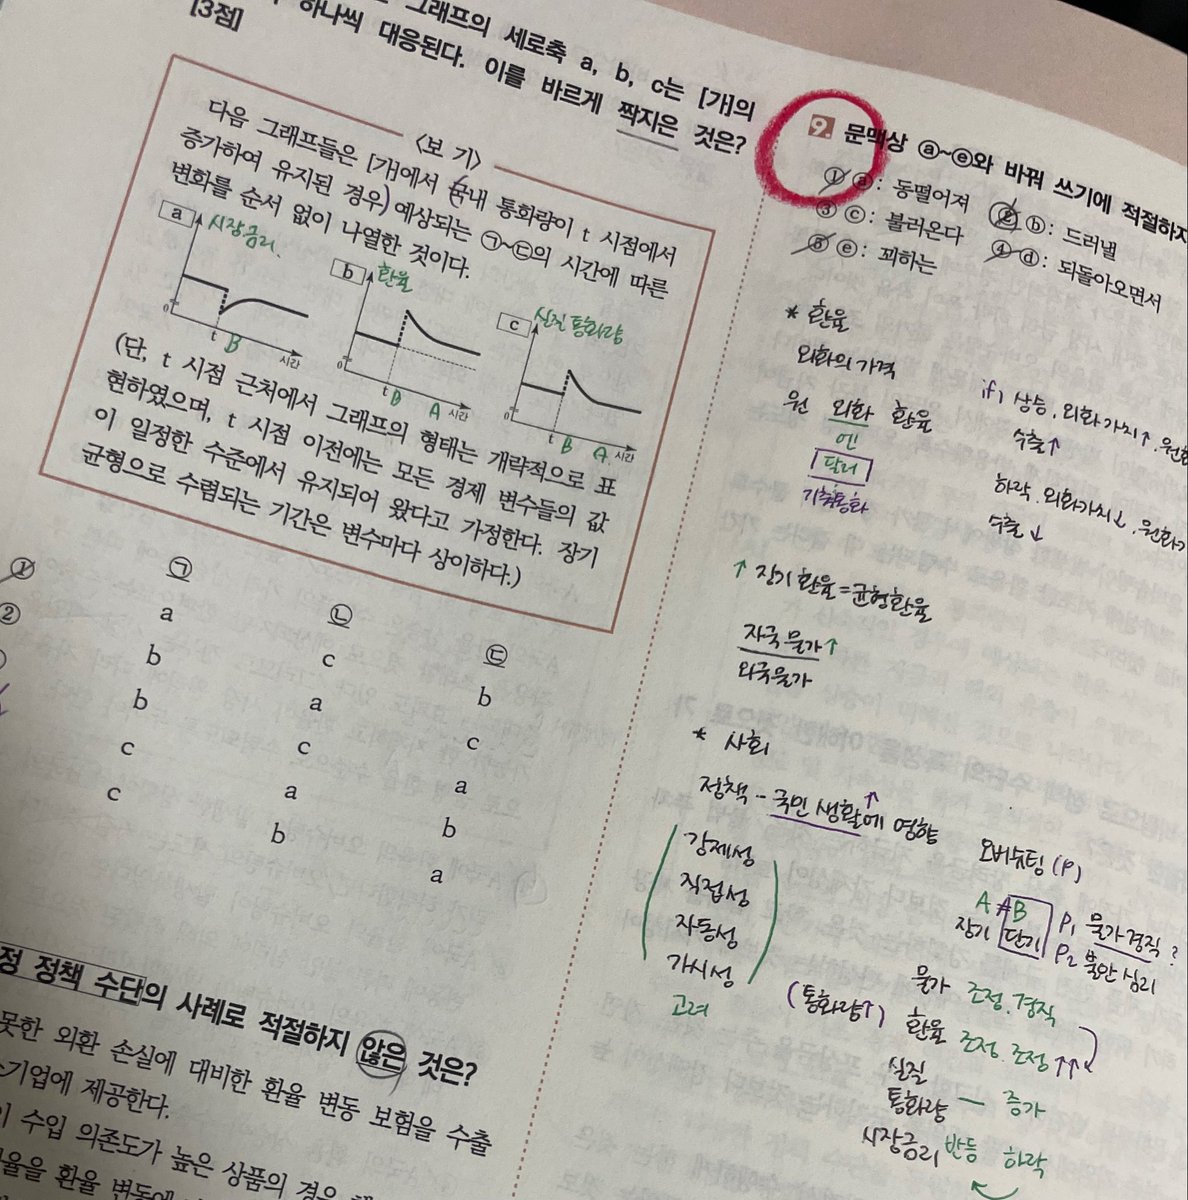 그래프의 세로축 a, b, c는 [가]의
하나씩 대응된다. 이를 바르게 짝지은 것은?
[3점]
<보 기>
다음 그래프들은 [가]에서 국내 통화량이 t 시점에서
증가하여 유지된 경우 예상되는 ㉠~㉢의 시간에 따른
변화를 순서 없이 나열한 것이다.
a 시장금리
0 t B 시간
b 환율
0 t B A 시간
c 실질 통화량
0 t B A 시간
(단, t 시점 근처에서 그래프의 형태는 개략적으로 표
현하였으며, t 시점 이전에는 모든 경제 변수들의 값
이 일정한 수준에서 유지되어 왔다고 가정한다. 장기
균형으로 수렴되는 기간은 변수마다 상이하다.)
㉠ ㉡ ㉢
① a c b
② b a c
b c a
c a b
c b a
정 정책 수단의 사례로 적절하지 않은 것은?
못한 외환 손실에 대비한 환율 변동 보험을 수출
기업에 제공한다.
수입 의존도가 높은 상품의 경우
율을 환율 변동에
9. 문맥상 ⓐ~ⓔ와 바꿔 쓰기에 적절하지
① ⓐ: 동떨어져 ② ⓑ: 드러낼
③ ⓒ: 불러온다 ④ ⓓ: 되돌아오면서
⑤ ⓔ: 꾀하는
* 환율
외화의 가격
원 외화 환율
엔
달러
기축통화
if, 상승, 외화가치↑, 원화
수출↑
하락, 외화가치↓, 원화가
수출↓
↑ 장기 환율 = 균형환율
자국 물가↑
외국물가
* 사회
정책 - 국민 생활에 영향
강제성
직접성
자동성
가시성
고려
오버슈팅 (P)
A ≠ B
장기 단기
P₁ 물가 경직 ?
P₂ 불안 심리
물가 조정, 경직
(통화량↑) 환율 조정, 조정↑↑
실질
통화량 — 증가
시장금리 반등 하락